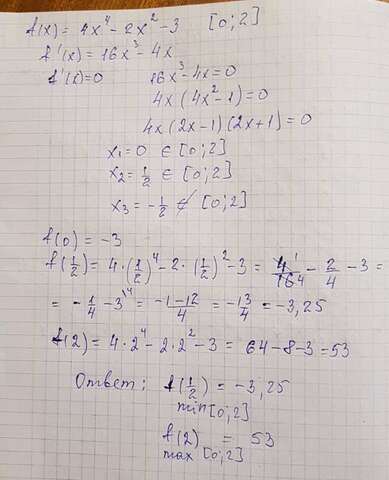 f(x) = 4x⁴ - 2x² - 3 [0; 2]
f'(x) = 16x³ - 4x
f'(x) = 0 16x³ - 4x = 0
4x(4x² - 1) = 0
4x(2x - 1)(2x + 1) = 0
x₁ = 0 ∈ [0; 2]
x₂ = 1/2 ∈ [0; 2]
x₃ = -1/2 ∉ [0; 2]
f(0) = -3
f(1/2) = 4·(1/2)⁴ - 2·(1/2)² - 3 = 4¹/16₄ - 2/4 - 3 =
= -1/4 - 3\⁴ = (-1-12)/4 = -13/4 = -3,25
f(2) = 4·2⁴ - 2·2² - 3 = 64 - 8 - 3 = 53
Ответ: f(1/2) = -3,25
min [0; 2]
f(2) = 53
max [0; 2]